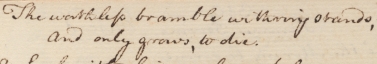 The worthless bramble with'ring stands,
And only grows, to die.